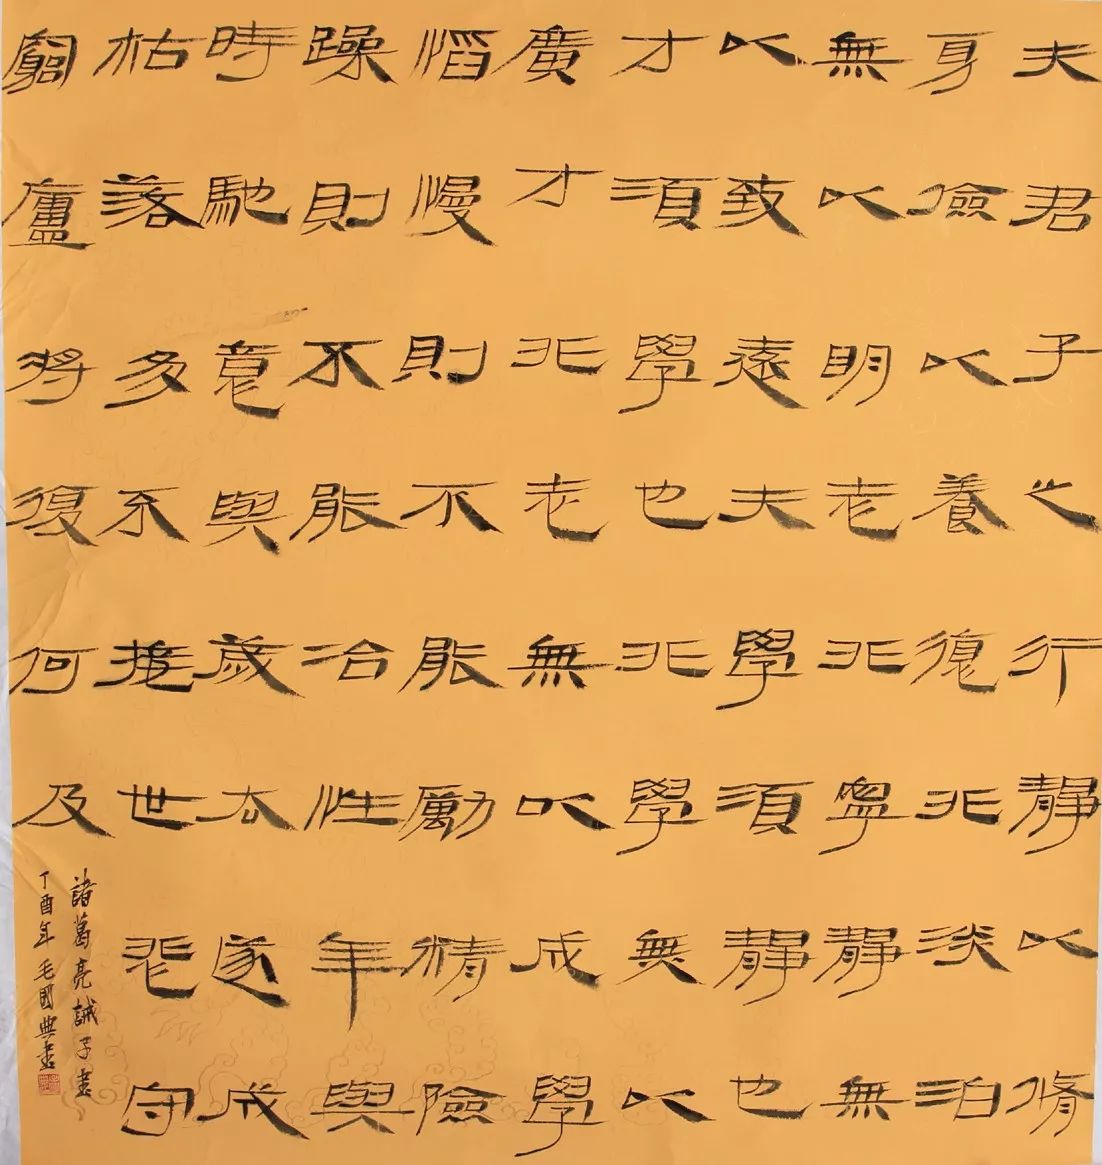 夫君子之行靜以脩
身儉以養德非淡泊
無以明志非寧靜無
以致遠夫學須靜也
才須學也非學無以
廣才非志無以成學
慆慢則不能勵精險
躁則不能冶性年與
時馳意與歲去遂成
枯落多不接世悲守
窮廬將復何及
諸葛亮誡子書
丁酉年毛國典書